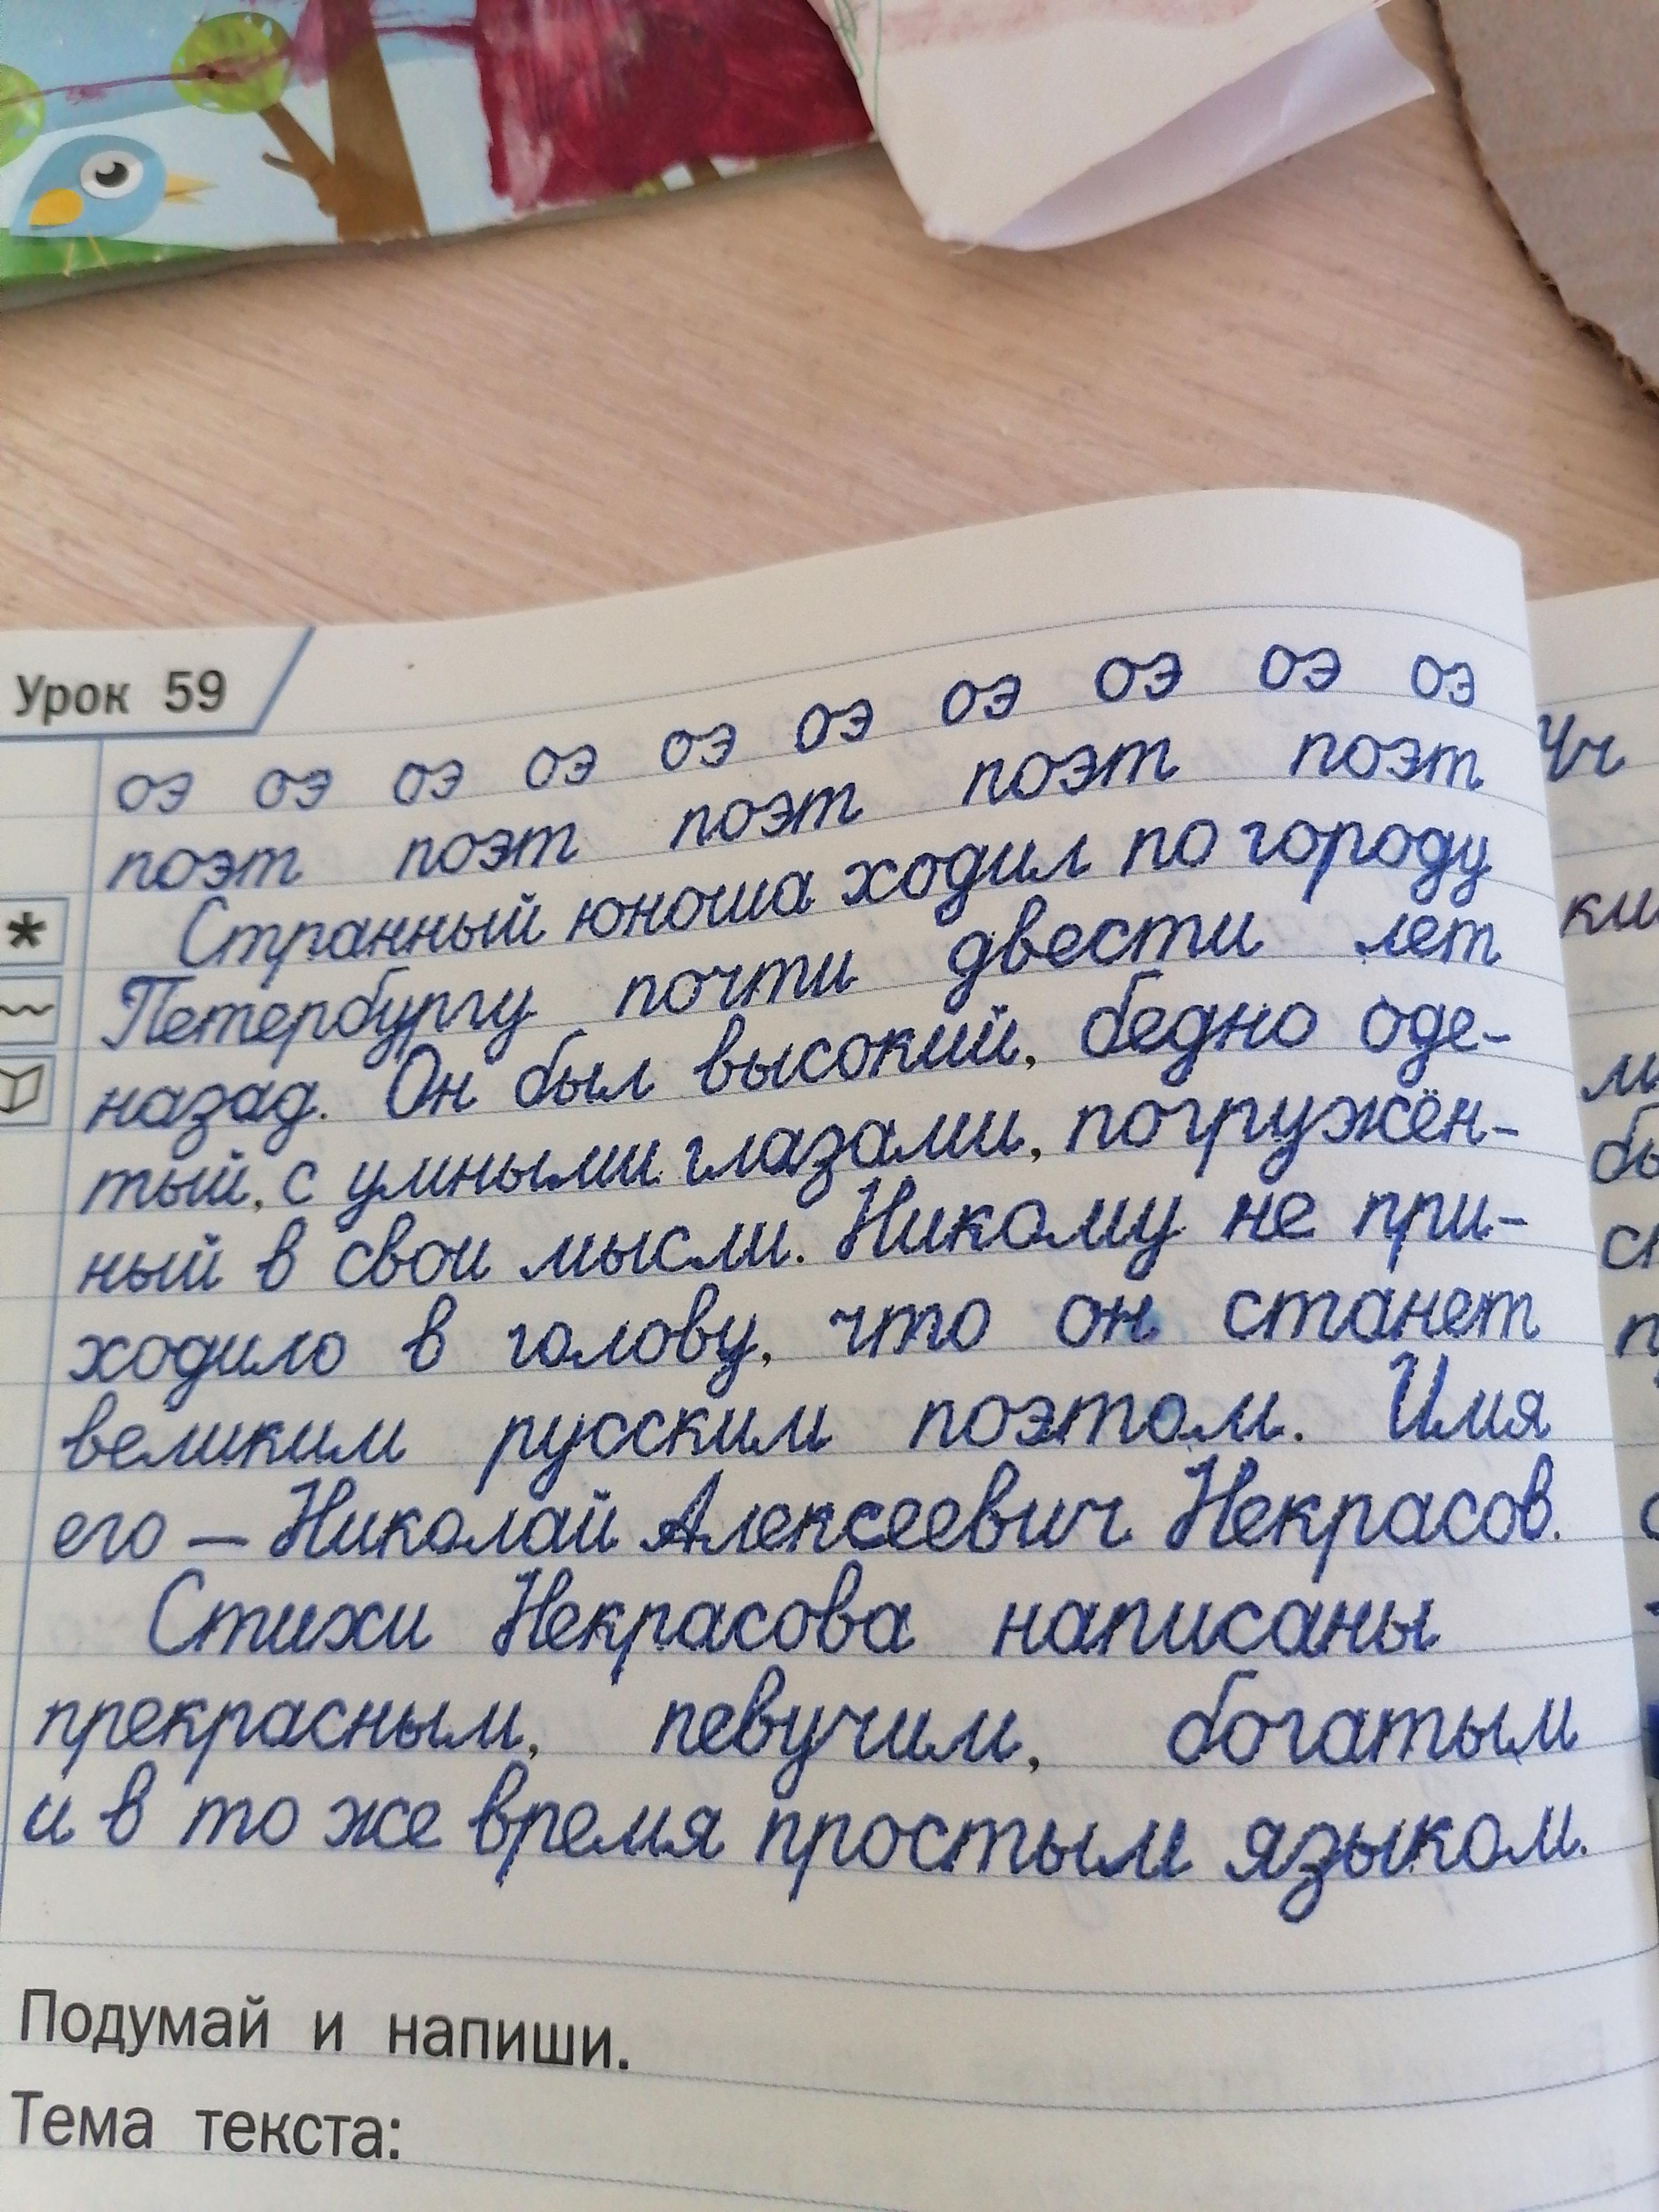 Урок 59
оэ оэ оэ оэ оэ оэ оэ оэ оэ оэ
поэт поэт поэт поэт поэт
Странный юноша ходил по городу
Петербургу почти двести лет
назад. Он был высокий, бедно оде-
тый, с умными глазами, погружён-
ный в свои мысли. Никому не при-
ходило в голову, что он станет
великим русским поэтом. Имя
его – Николай Алексеевич Некрасов.
Стихи Некрасова написаны
прекрасным, певучим, богатым
и в то же время простым языком.
Подумай и напиши.
Тема текста:
Чч